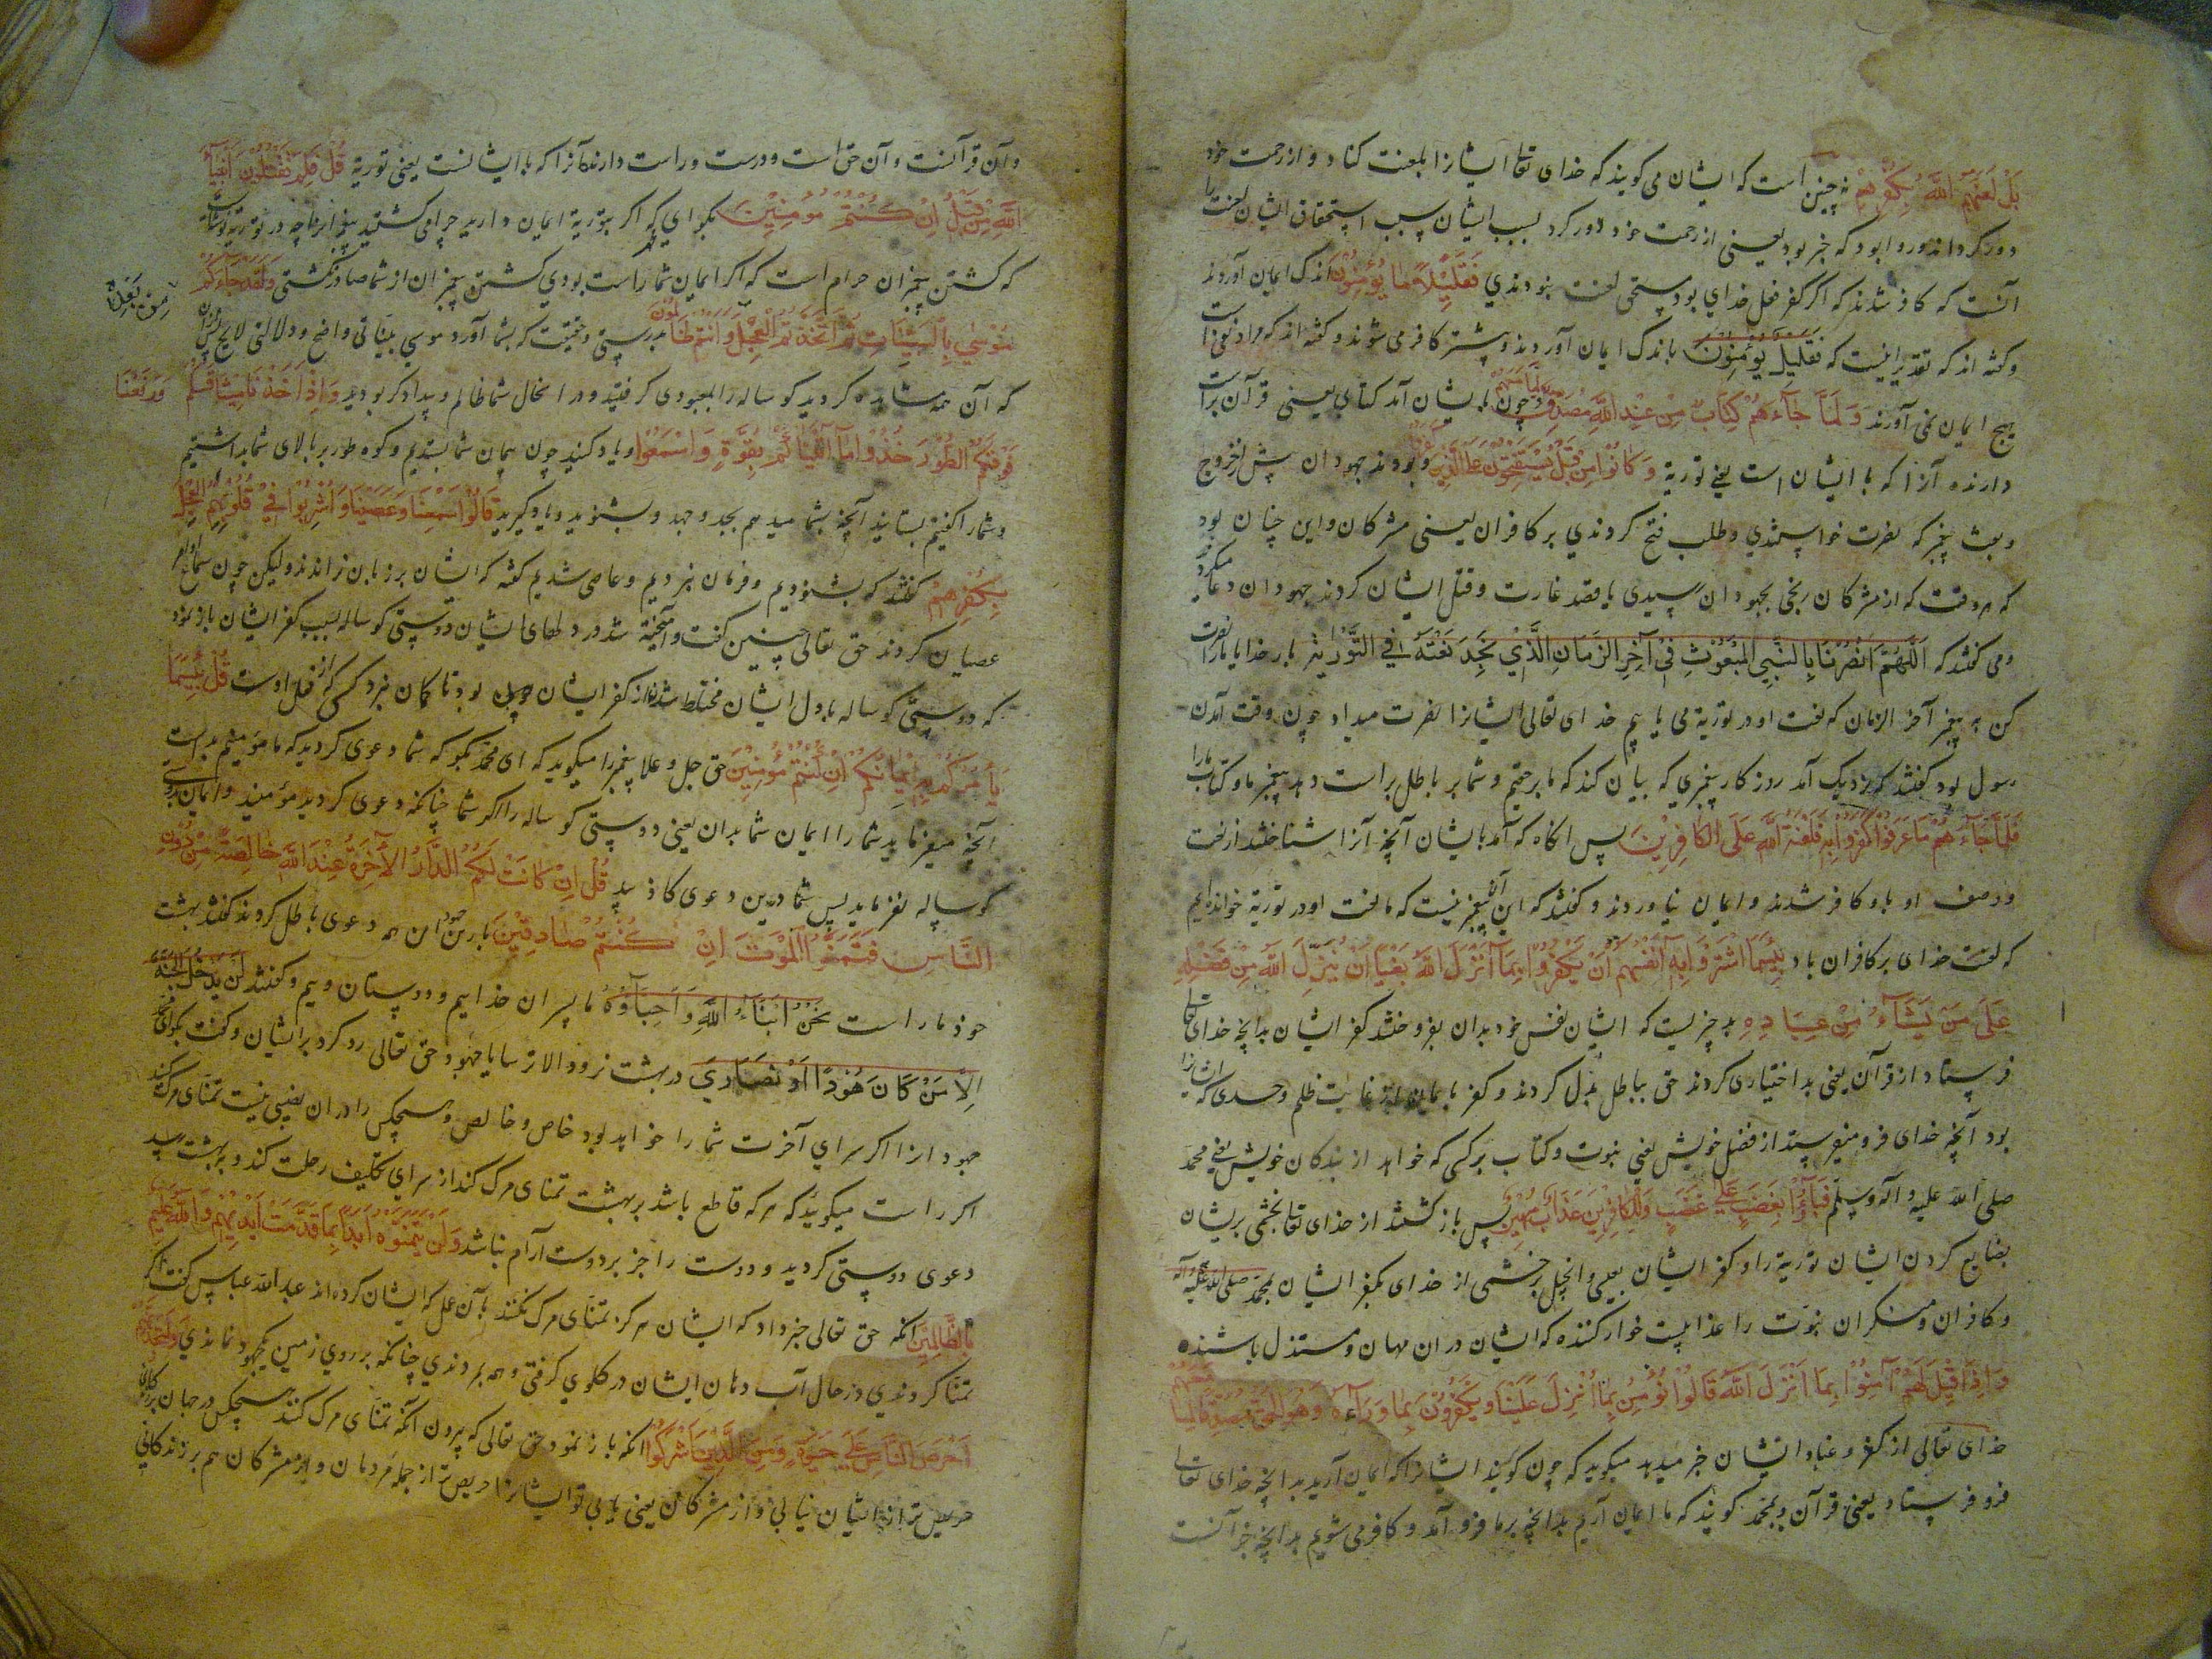 بَلْ لَعَنَهُمُ اللَّهُ بِكُفْرِهِمْ نه چنین است که ایشان می کویند که خدای تعا ایشانرا بلعنت کناد و از رحمت خود
دور کرداند و روا بود که خبر بود یعنی از رحمت خود دور کرد بسبب ایشان بسبب استحقاق ایشان لعنت را
آنست که کافر شدند که اکر کفر فعل خدای بود مستحق لعنت نبودندي فَقَلِيلًا مَا يُؤْمِنُونَ اندک ایمان آوردند
وکفته اند که تقدیر اینست که فَقَلِیلٍ يُؤْمِنُونَ باندک ایمان آوردند و بیشتر کافر می شوند و کفته اند که مراد نفی است
هیچ ایمان نمی آورند وَلَمَّا جَاءَهُمْ كِتَابٌ مِنْ عِنْدِ اللَّهِ مُصَدِّقٌ لِمَا مَعَهُمْ و چون بایشان آمد کتابی یعنی قرآن براست
دارنده آنرا که با ایشان است یعنی توریة وَكَانُوا مِنْ قَبْلُ يَسْتَفْتِحُونَ عَلَى الَّذِينَ كَفَرُوا و بودند جهودان پیش از خروج
و بعث پیغمبر که نصرت خواستندي و طلب فتح کردندي بر کافران یعنی مشرکان و این چنان بود
که هر وقت که از مشرکان رنجی بجهودان رسیدی یا قصد غارت و قتل ایشان کردند جهودان دعا میکردند
و می کفتند که اَللَّهُمَّ انْصُرْنَا بِالنَّبِيِّ الْمَبْعُوثِ فِي آخِرِ الزَّمَانِ الَّذِي نَجِدُ نَعْتَهُ فِي التَّوْرٰیةِ بار خدایا ما را نصرت
کن به پیغمبر آخر الزمان که نعت او در توریة می یابیم خدای تعالی ایشانرا نصرت میداد چون وقت آمدن
رسول بود کفتند که نزدیک آمد روزکار پیغمبري که بیان کند که ما بر حقیم و شما بر باطل براست دارد پیغمبر ما و کتاب ما را
فَلَمَّا جَاءَهُمْ مَا عَرَفُوا كَفَرُوا بِهِ فَلَعْنَةُ اللَّهِ عَلَى الْكَافِرِينَ پس آنکاه که آمد بایشان آنچه آنرا شناختند از نعت
و وصف او باو کافر شدند و ایمان نیاوردند و کفتند که این آن پیغمبر نیست که ما نعت او در توریة خوانده ایم
که لعنت خدای بر کافران باد بِئْسَمَا اشْتَرَوْا بِهِ أَنْفُسَهُمْ أَنْ يَكْفُرُوا بِمَا أَنْزَلَ اللَّهُ بَغْيًا أَنْ يُنَزِّلَ اللَّهُ مِنْ فَضْلِهِ
عَلَى مَنْ يَشَاءُ مِنْ عِبَادِهِ بد چیزیست که ایشان نفس خود بدان بفروختند کفر ایشان بدانچه خدای تعا
فرستاد از قرآن یعنی بد اختیاری کردند حق بباطل بدل کردند و کفر بایمان از غایت ظلم و حسدی که ایشانرا
بود آنچه خدای فرو میفرستد از فضل خویش یعنی نبوت و کتاب بر کسی که خواهد از بندکان خویش یعنی محمد
صلی الله علیه و آله وسلم فَبَاءُوا بِغَضَبٍ عَلَى غَضَبٍ وَلِلْكَافِرِينَ عَذَابٌ مُهِينٌ پس بازکشتند از خدای تعا بخشمی بریشان
بضایع کردن ایشان توریة را و کفر ایشان بعیسی و انجیل بر خشمی از خدای بکفر ایشان بمحمد صلی الله علیه وآله
و کافران و منکران نبوت را عذابیست خوارکننده که ایشان دران مهان و مستذل باشند
وَإِذَا قِيلَ لَهُمْ آمِنُوا بِمَا أَنْزَلَ اللَّهُ قَالُوا نُؤْمِنُ بِمَا أُنْزِلَ عَلَيْنَا وَيَكْفُرُونَ بِمَا وَرَاءَهُ وَهُوَ الْحَقُّ مُصَدِّقًا لِمَا مَعَهُمْ
خدای تعالی از کفر و عناد ایشان خبر میدهد میکوید که چون کویند ایشانرا که ایمان آرید بدانچه خدای تعالی
فرو فرستاد یعنی قرآن و بمحمد کویند که ما ایمان آریم بدانچه بر ما فرو آمد و کافر می شویم بدانچه جز آنست
و آن قرآنست و آن حق است و درست و راست دارنده آنرا که با ایشانست یعنی توریة قُلْ فَلِمَ تَقْتُلُونَ أَنْبِيَاءَ
اللَّهِ مِنْ قَبْلُ إِنْ كُنْتُمْ مُؤْمِنِينَ بکو ای محمد که اکر بتوریة ایمان دارید چرا می کشتید پیغمبرانرا چه در توریة نوشته است
که کشتن پیغمبران حرام است که اکر ایمان شما راست بودي کشتن پیغمبران از شما صادر نکشتی وَلَقَدْ جَاءَكُمْ
مُوسَى بِالْبَيِّنَاتِ ثُمَّ اتَّخَذْتُمُ الْعِجْلَ وَأَنْتُمْ ظَالِمُونَ بدرستی و حقیقت که بشما آورد موسی بیناتی واضح و دلالتی لایح پس ازان
مِنْ بَعْدِهِ
که آن همه مشاهده کردید کوساله را بمعبودی کرفتید و در انحال شما ظالم و بیدادکر بودید وَإِذْ أَخَذْنَا مِيثَاقَكُمْ وَرَفَعْنَا
فَوْقَكُمُ الطُّورَ خُذُوا مَا آتَيْنَاكُمْ بِقُوَّةٍ وَاسْمَعُوا و یاد کنید چون پیمان شما بستدیم و کوه طور بر بالای شما بداشتیم
و شما را کفتیم بستانید آنچه بشما میدهم بجد و جهد و بشنوید و یاد کیرید قَالُوا سَمِعْنَا وَعَصَيْنَا وَأُشْرِبُوا فِي قُلُوبِهِمُ الْعِجْلَ
بِكُفْرِهِمْ کفتند که بشنودیم و فرمان نبردیم و عاصی شدیم کفته که ایشان بر زبان نراندند ولیکن چون سماع
عصیان کردند حق تعالی چنین کفت و آمیخته شد در دلهای ایشان دوستی کوساله بسبب کفر ایشان بازنمود
که دوستی کوساله بدل ایشان مختلط شدن از کفر ایشان بود تا کمان نبرد کسی که از فعل اوست قُلْ بِئْسَمَا
يَأْمُرُكُمْ بِهِ إِيمَانُكُمْ إِنْ كُنْتُمْ مُؤْمِنِينَ حق جل و علا پیغمبر را میکوید که ای محمد بکو که شما دعوی کردید که ما مؤمنیم بد است
آنچه میفرماید شما را ایمان شما بدان یعنی دوستی کوساله را اکر شما چنانکه دعوی کردید مؤمنید و ایمان بدوستی
کوساله نفرماید پس شما درین دعوی کاذبید قُلْ إِنْ كَانَتْ لَكُمُ الدَّارُ الْآخِرَةُ عِنْدَ اللَّهِ خَالِصَةً مِنْ دُونِ
النَّاسِ فَتَمَنَّوُا الْمَوْتَ إِنْ كُنْتُمْ صَادِقِينَ این همه دعوی باطل کردند کفتند بهشت
خود ما راست نَحْنُ أَبْنَاءُ اللَّهِ وَأَحِبَّاؤُهُ ما پسران خداییم و دوستان ویم و کفتند لَنْ يَدْخُلَ الْجَنَّةَ
إِلَّا مَنْ كَانَ هُودًا أَوْ نَصَارَى در بهشت نرود الا ترسا یا جهود حق تعالی رد کرد بر ایشان و کفت بکو ای محمد
جهودانرا اکر سرای آخرت شما را خواهد بود خاص و خالص و هیچکس را در ان نصیبی نیست تمنای مرک کنید
اکر راست میکویید که هر که قاطع باشد بر بهشت تمنای مرک کند از سرای تکلیف رحلت کند و به بهشت رسد
دعوی دوستی کردید و دوست را جز بر دوست آرام نباشد وَلَنْ يَتَمَنَّوْهُ أَبَدًا بِمَا قَدَّمَتْ أَيْدِيهِمْ وَاللَّهُ عَلِيمٌ
بِالظَّالِمِينَ آنکه حق تعالی خبر داد که ایشان هرکز تمنای مرک نکنند بآن عمل که ایشان کرده اند عبدالله عباس کفت اکر
تمنا کردندي در حال آب دهان ایشان در کلوی کرفتی و همه بمردندي چنانکه بر روي زمین یک جهود نماندي وَلَتَجِدَنَّهُمْ
أَحْرَصَ النَّاسِ عَلَى حَيَوةٍ وَمِنَ الَّذِينَ أَشْرَكُوا آنکه باز نمود حق تعالی که بیرون آنکه تمنای مرک کنند هیچکس در جهان بر زندکانی
حریص تر از ایشان نیابی و از مشرکان یعنی یابی تو ایشانرا حریص تر از جمله مردمان و از مشرکان هم بر زندکانی